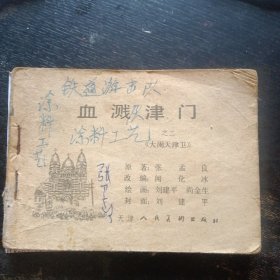 铁道游击队
血溅津门
涂料工艺
涂料工艺 之二
《大闹天津卫》
原著：张孟良
改编：闻化冰
绘画：刘建平 尚金生
封面：刘建平
天津人民美术出版社